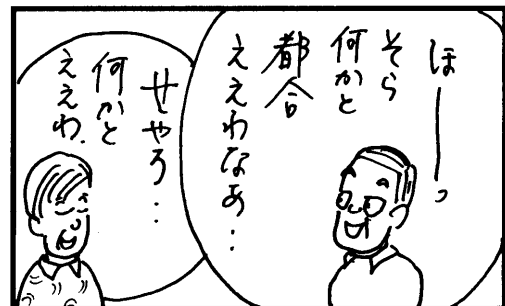 ほーっ
そら
何かと
都合
ええわなあ‥
せやろ‥
何かと
ええわ.